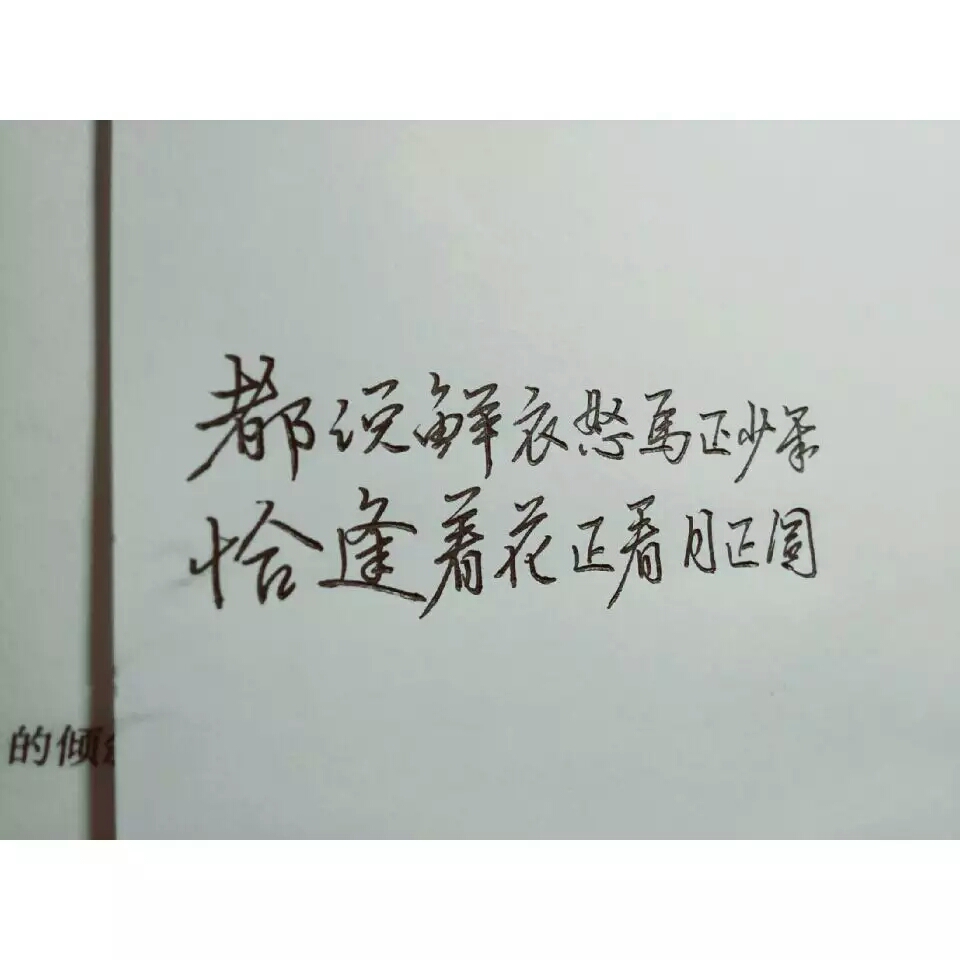 都说鲜衣怒馬正少年
恰逢着花正看月正圆
的倾